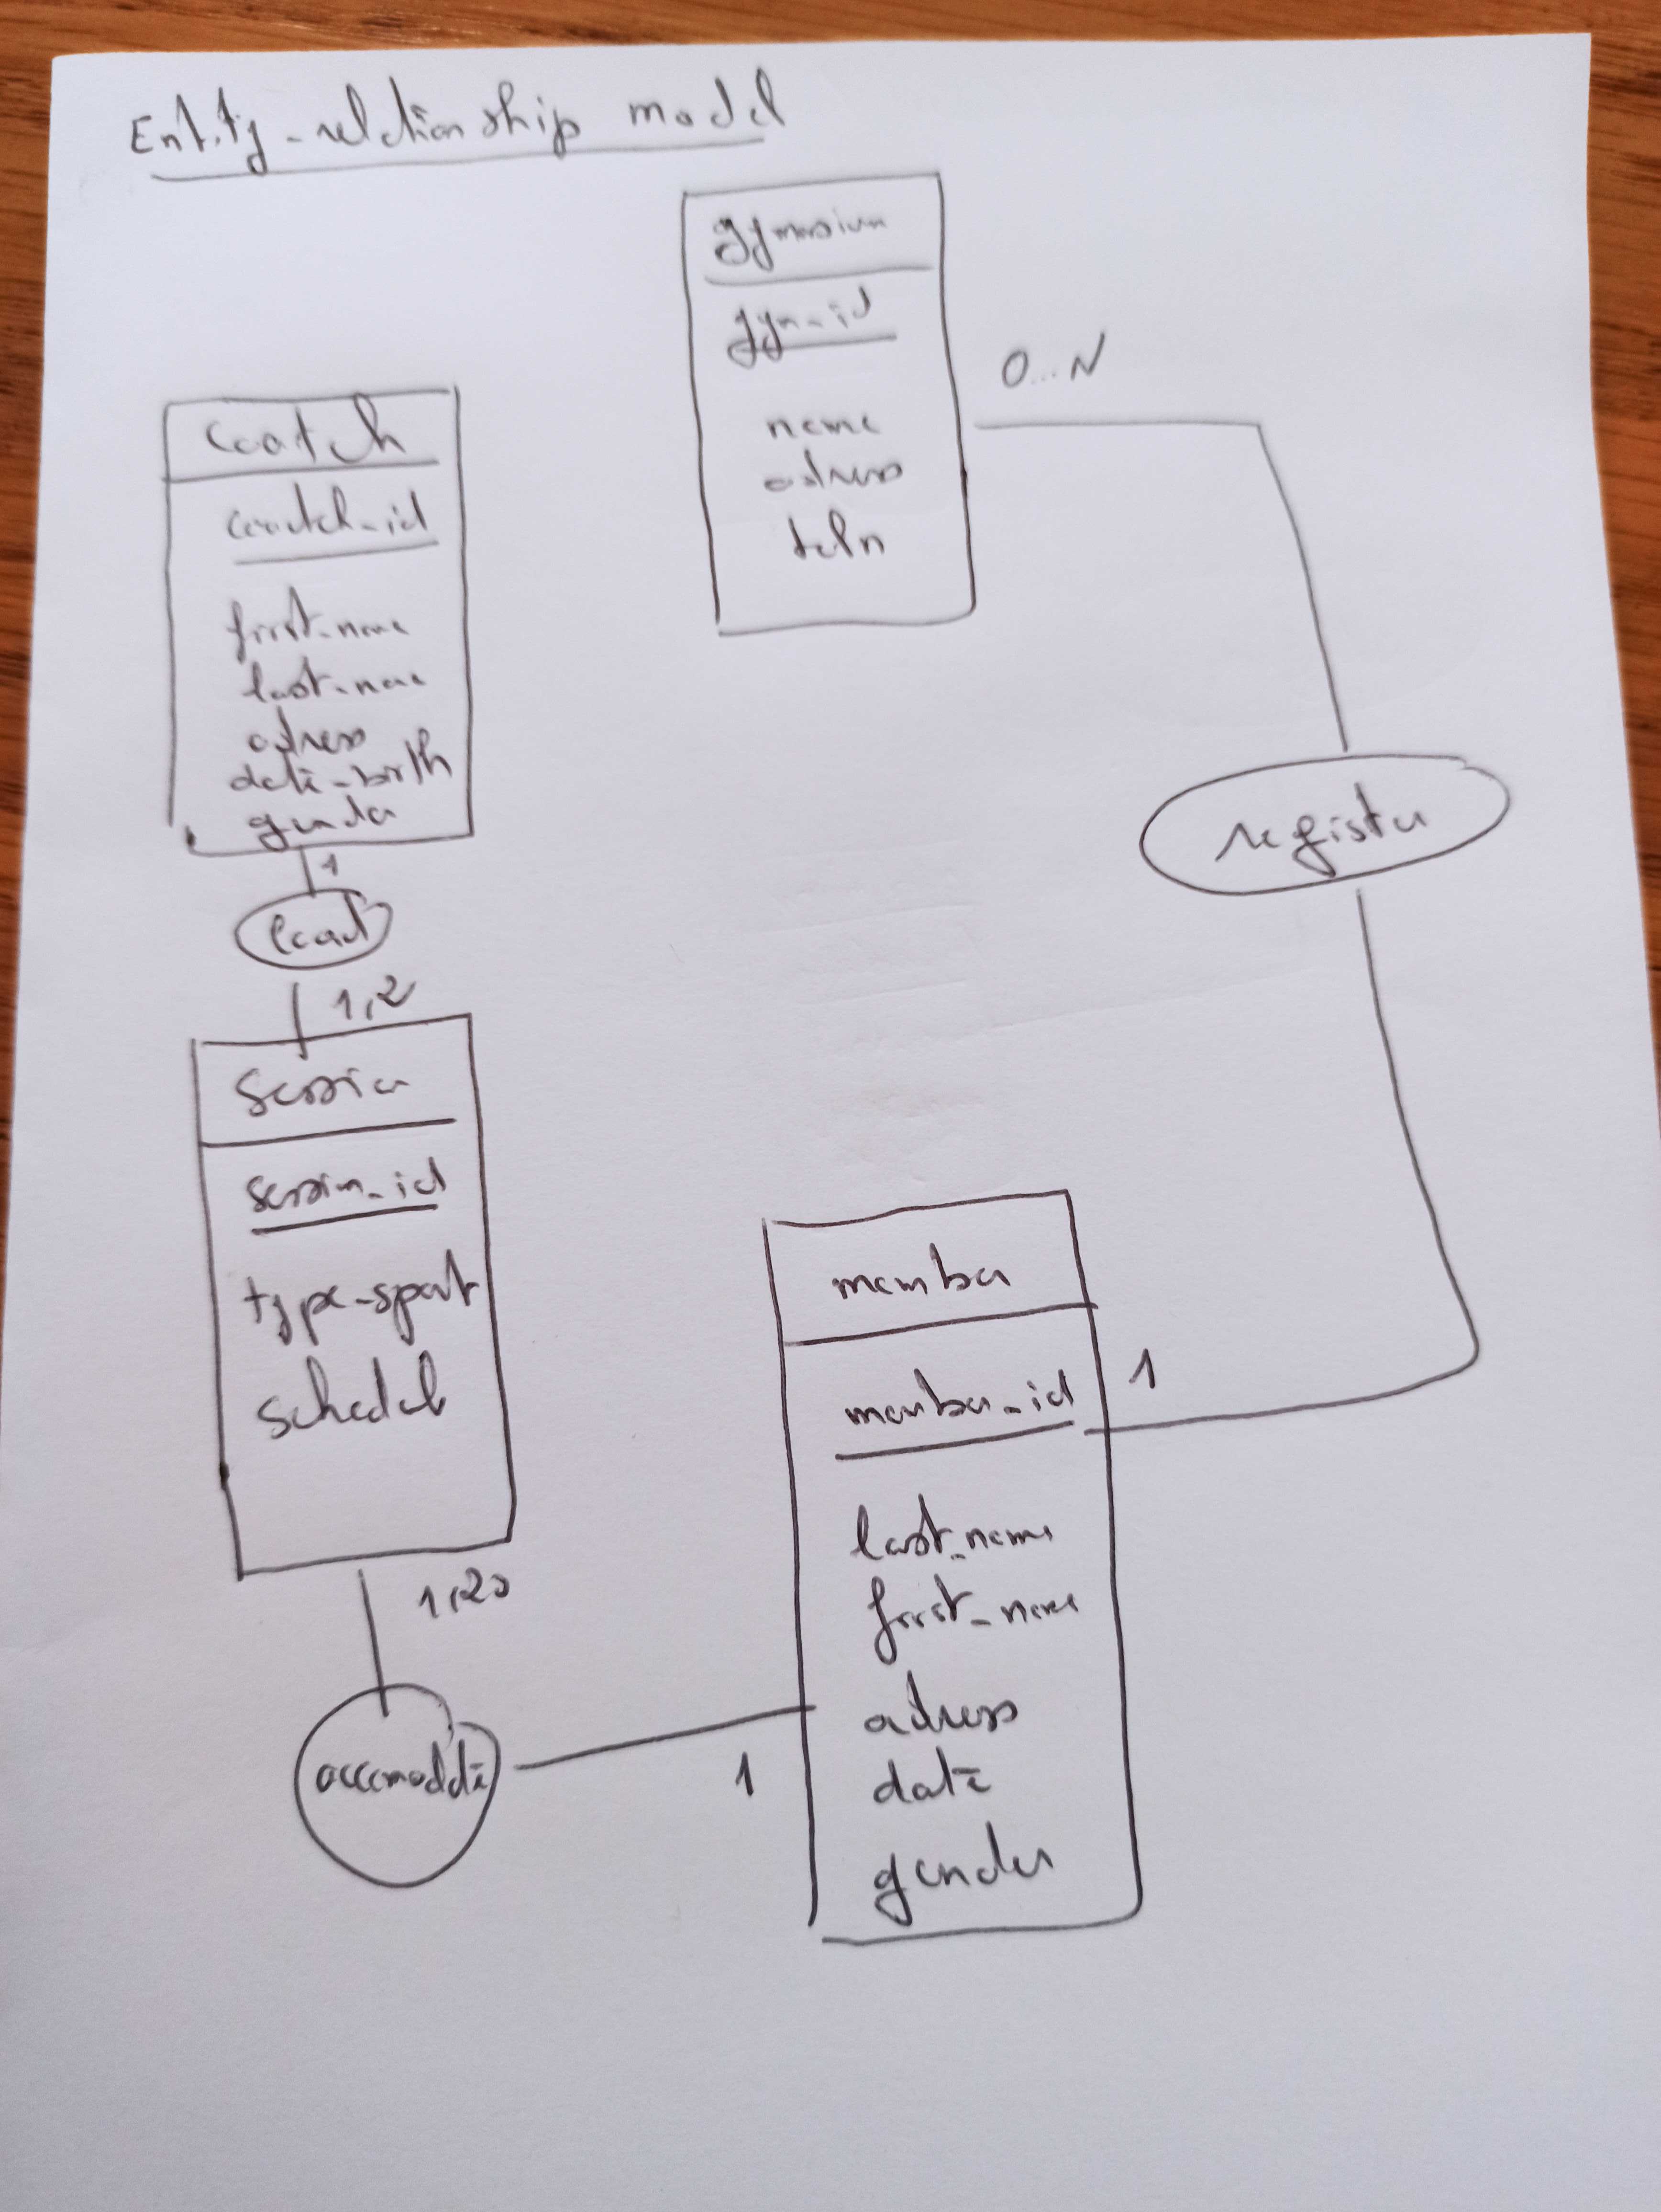 Entity-relationship model
gymnasium
gym-id
name
adress
teln
0...N
coatch
coatch-id
first-name
last-name
adress
date-birth
gender
1
lead
1,2
session
session-id
type-sport
schedule
1,20
accomodate
1
register
member
member-id
1
last-name
first-name
adress
date
gender